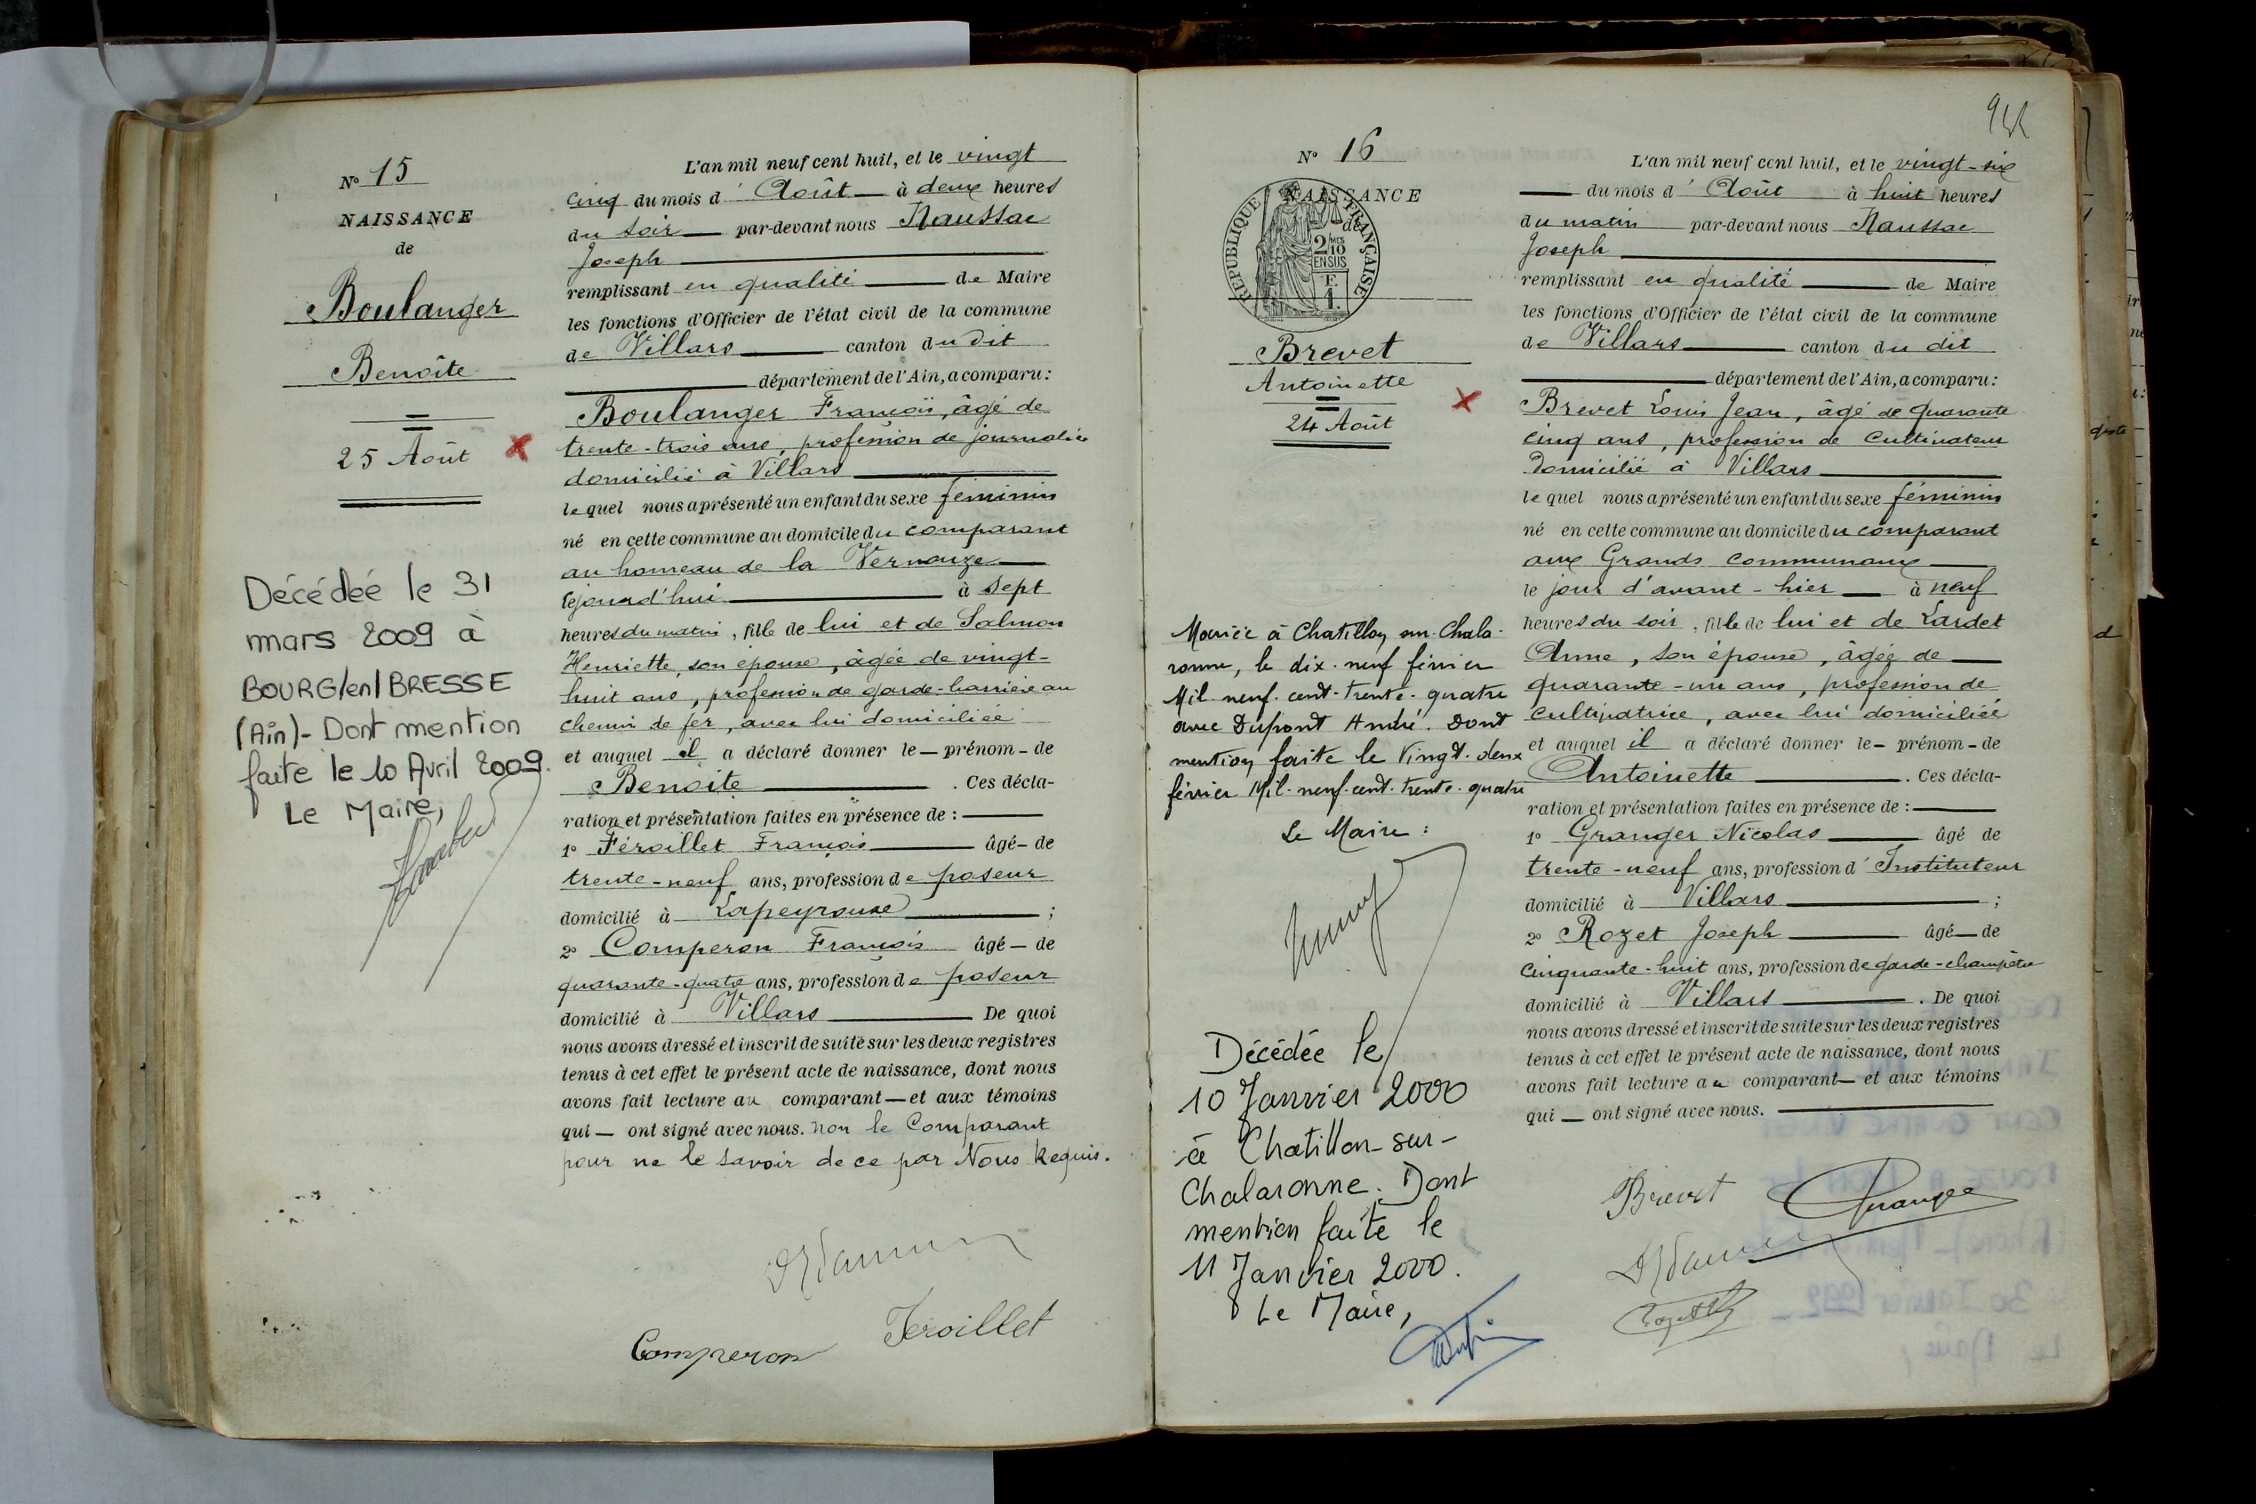 N° 15
NAISSANCE
de
Boulanger
Benoîte
25 Août
Décédée le 31
mars 2009 à
BOURG/en/BRESSE
(Ain)- Dont mention
faite le 10 Avril 2009.
Le Maire,
L'an mil neuf cent huit, et le vingt
cinq du mois d' Août à deux heures
du soir par-devant nous Naussac
Joseph
remplissant en qualité de Maire
les fonctions d'Officier de l'état civil de la commune
de Villars canton du dit
département de l'Ain, a comparu :
Boulanger François, âgé de
trente-trois ans, profession de journalier
domicilié à Villars
lequel nous a présenté un enfant du sexe féminin
né en cette commune au domicile du comparant
au hameau de la Vernouze
lejourd'hui à sept
heures du matin, fille de lui et de Salmon
Henriette, son épouse, âgée de vingt-
huit ans, profession de garde-barrière au
chemin de fer, avec lui domiciliée
et auquel il a déclaré donner le - prénom - de
Benoite . Ces décla-
ration et présentation faites en présence de :
1° Féroillet François âgé - de
trente-neuf ans, profession de poseur
domicilié à Lapeyrouse ;
2° Comperon François âgé - de
quarante-quatre ans, profession de poseur
domicilié à Villars De quoi
nous avons dressé et inscrit de suite sur les deux registres
tenus à cet effet le présent acte de naissance, dont nous
avons fait lecture au comparant - et aux témoins
qui - ont signé avec nous. non le Comparant
pour ne le savoir de ce par Nous Requis.
Feroillet
Comperon
942
N° 16
NAISSANCE
de
REPUBLIQUE FRANÇAISE
2/10 EN SUS
F. 1.
Brevet
Antoinette
24 Août
Mariée à Chatillon sur-Chala-
ronne, le dix-neuf février
Mil-neuf-cent-trente-quatre
avec Dupont André. Dont
mention faite le Vingt-deux
février Mil-neuf-cent-trente-quatre
Le Maire :
Décédée le
10 Janvier 2000
à Chatillon-sur-
Chalaronne. Dont
mention faite le
11 Janvier 2000.
Le Maire,
L'an mil neuf cent huit, et le vingt-six
du mois d' Août à huit heures
du matin par-devant nous Naussac
Joseph
remplissant en qualité de Maire
les fonctions d'Officier de l'état civil de la commune
de Villars canton du dit
département de l'Ain, a comparu :
Brevet Louis Jean, âgé de quarante
cinq ans, profession de Cultivateur
domicilié à Villars
lequel nous a présenté un enfant du sexe féminin
né en cette commune au domicile du comparant
aux Grands Communaux
le jour d'avant-hier à neuf
heures du soir, fille de lui et de Lardet
Anne, son épouse, âgée de
quarante-un ans, profession de
Cultivatrice, avec lui domiciliée
et auquel il a déclaré donner le - prénom - de
Antoinette . Ces décla-
ration et présentation faites en présence de :
1° Granger Nicolas âgé de
trente-neuf ans, profession d' Instituteur
domicilié à Villars ;
2° Rozet Joseph âgé - de
Cinquante-huit ans, profession de garde-champêtre
domicilié à Villars . De quoi
nous avons dressé et inscrit de suite sur les deux registres
tenus à cet effet le présent acte de naissance, dont nous
avons fait lecture au comparant - et aux témoins
qui - ont signé avec nous.
Brevet Granger